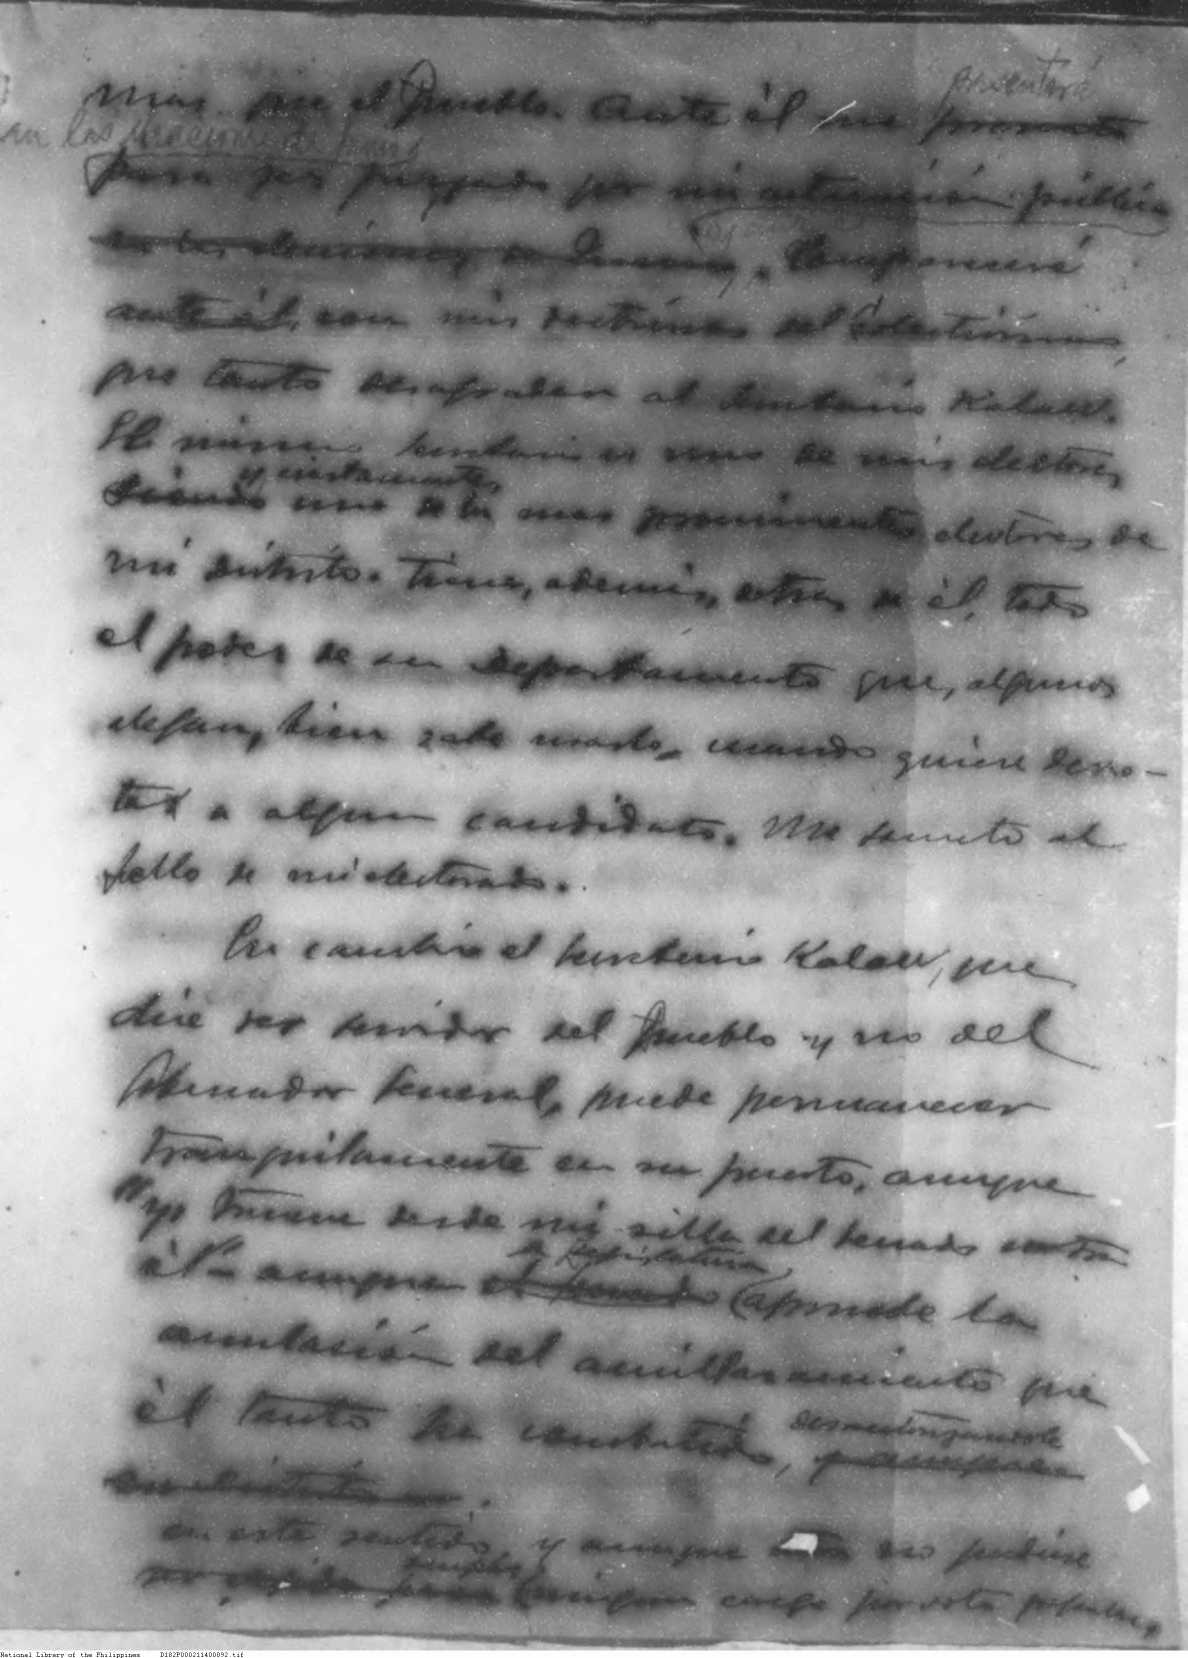 mas que el Pueblo. Ante él me presentaré
en las elecciones de Junio
para ser juzgado por mi actuación pública
en las elecciones de Junio. Compareceré
ante él, con mis doctrinas del colectivismo,
que tanto desagradan al Secretario Kalaw.
El mismo Secretario es uno de mis electores,
y ciertamente,
siendo uno de los mas prominentes electores de
mi distrito. Tiene, además, detras de él, todo
el poder de su Departamento que, algunos
alegan, bien sabe usarlo, cuando quiere derro-
tar a algun candidato. Me someto al
fallo de mi electorado.
En cambio el Secretario Kalaw, que
dice ser servidor del Pueblo y no del
Gobernador General, puede permanecer
tranquilamente en su puesto, aunque
"yo truene desde mi silla del Senado contra
él" - aunque la Legislatura apruebe la
anulación del amillaramiento que
él tanto ha combatido, desautorizandole
en este sentido y aunque no pudiese
ningun cargo por voto popular,
National Library of the Philippines D182P000211400892.tif